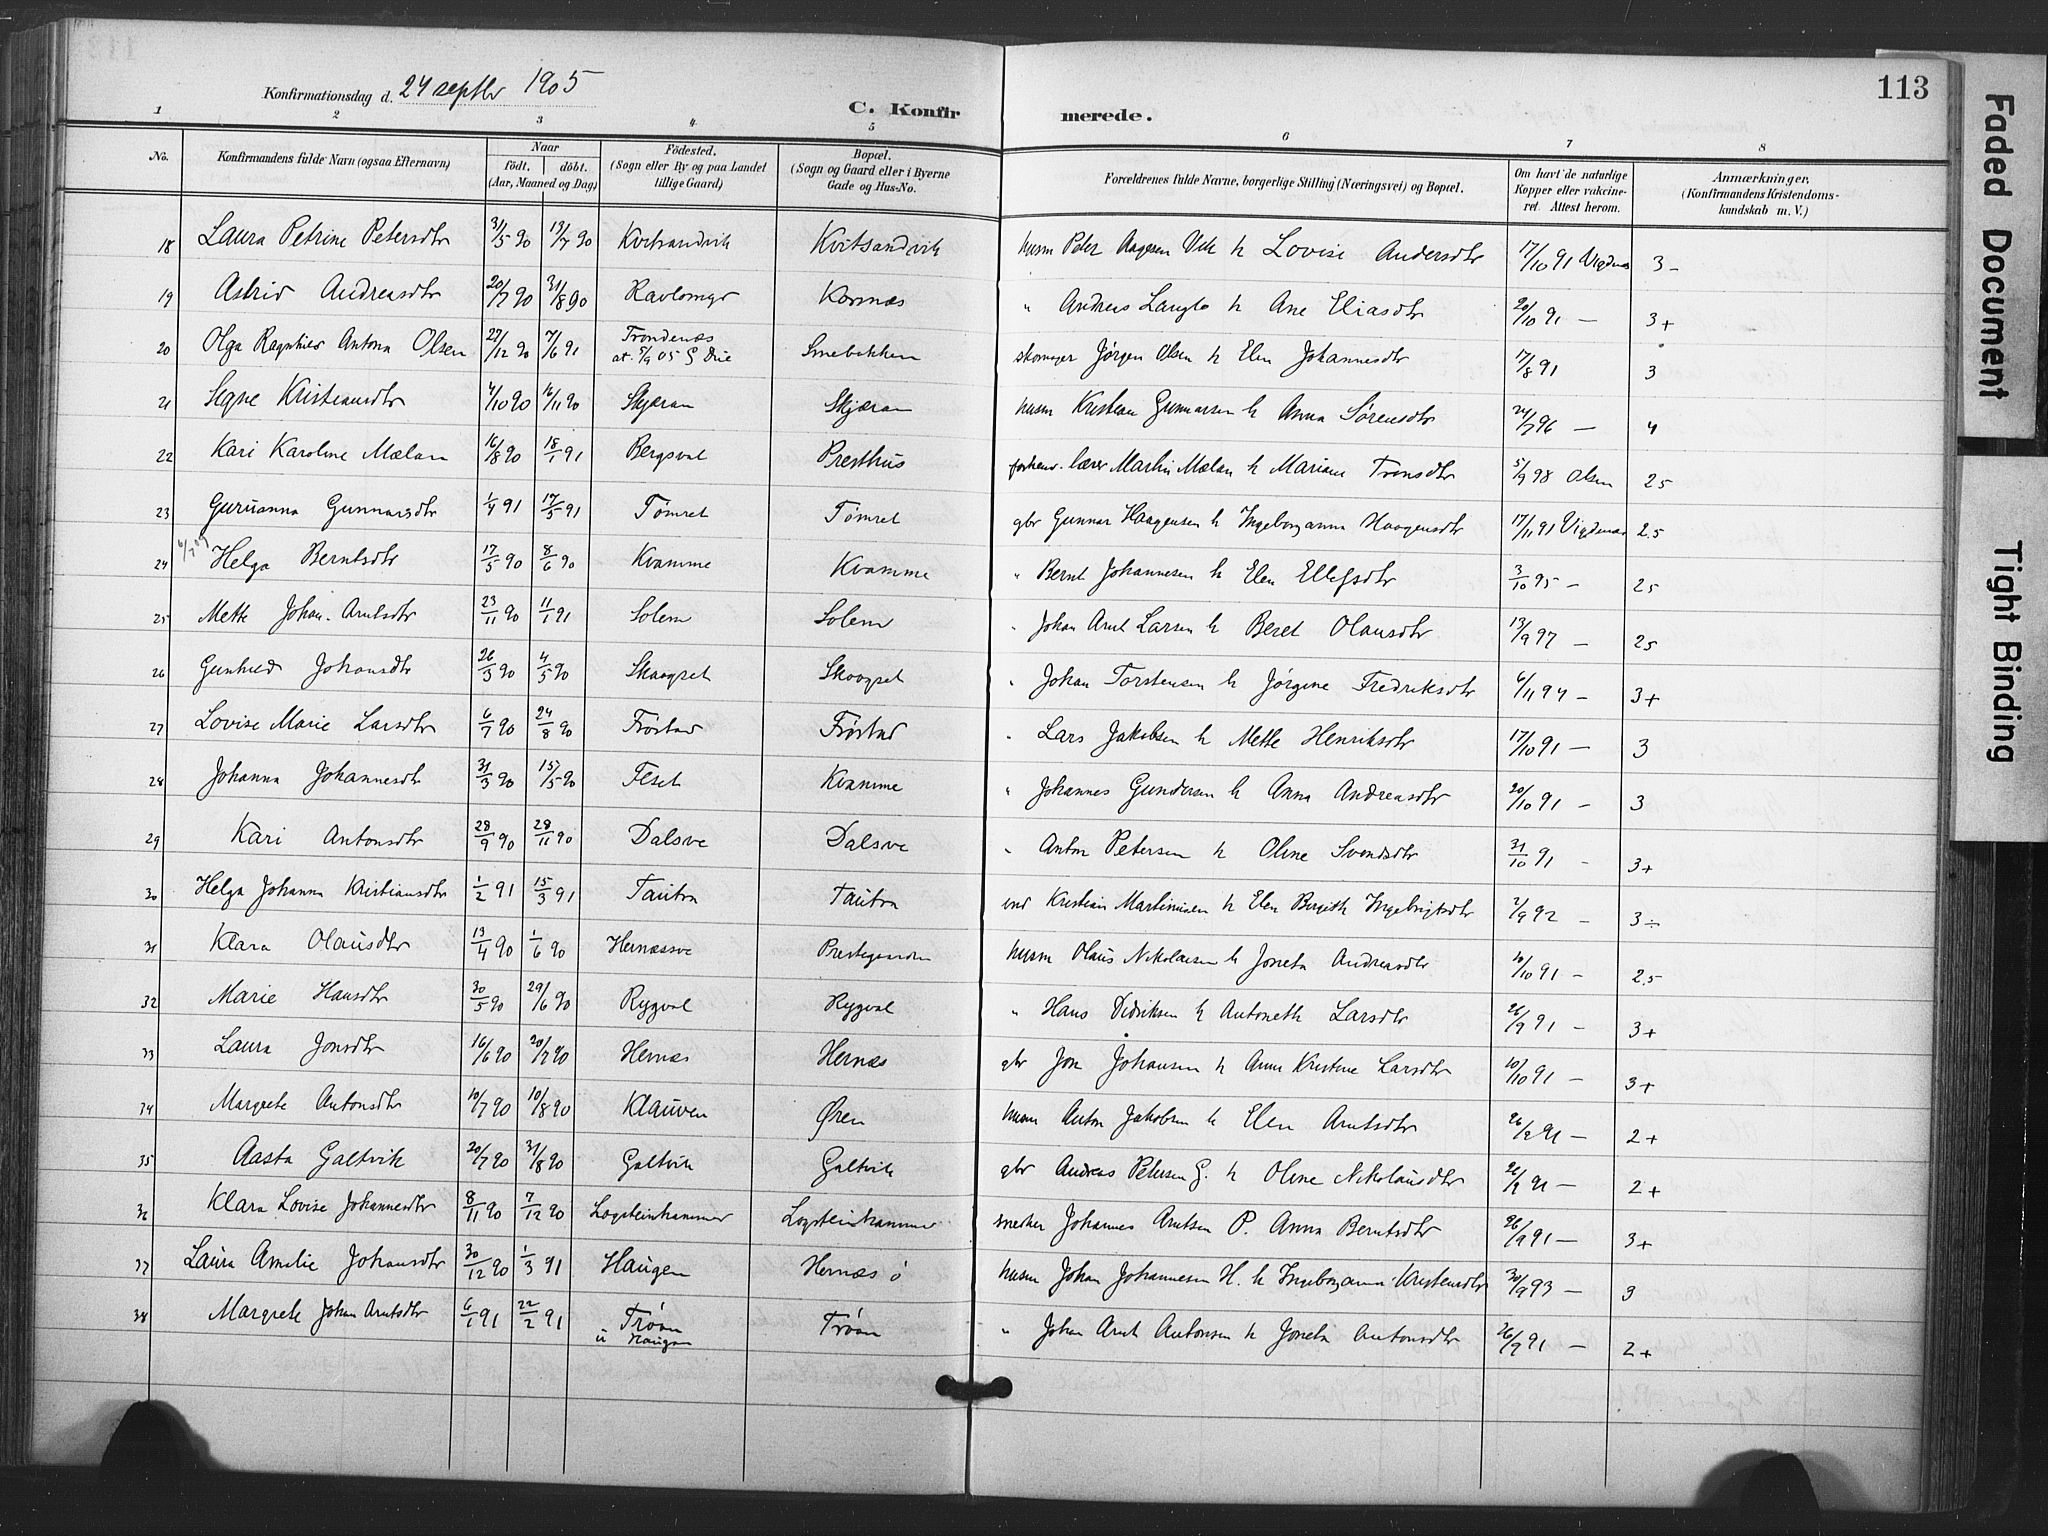 113
Faded Document
Tight Binding
Konfirmationsdag d. 24 septbr 1905
C. Konfirmerede.
1 2 3 4 5 6 7 8
No. Konfirmandens fulde Navn (ogsaa Efternavn) Naar födt. döbt. (Aar, Maaned og Dag) Födested. (Sogn eller By og paa Landet tillige Gaard) Bopæl. (Sogn og Gaard eller i Byerne Gade og Hus-No. Forældrenes fulde Navne, borgerlige Stilling (Næringsvei) og Bopæl. Om havt de naturlige Kopper eller vakcineret. Attest herom. Anmærkninger. (Konfirmandens Kristendomskundskab m. V.)
18 Laura Petrine Petersdtr 31/5 90 13/7 90 Kvitsandvik Kvitsandvik husm Peter Aagesen Vik h Lovise Andersdtr 17/10 91 Vigdnes 3-
19 Astrid Andreasdtr 20/7 90 31/8 90 Ravlomyr Kornæs " Andreas Langlo h Ane Eliasdtr 20/10 91 — 3+
20 Olga Ragnhild Antona Olsen 27/12 90 7/6 91 Trondenæs Smebakken skomager Jørgen Olsen h Elen Johannesdtr 17/8 91 3
21 Segne Kristiansdtr 4/10 90 16/11 90 Skjæran Skjæran husm Kristian Gunnarsen h Anna Sørensdtr 24/7 96 — 4
22 Kari Karoline Mælan 16/8 90 18/1 91 Bergsval Presthus forhenv. lærer Martin Mælan h Mariane Tronsdtr 5/9 98 Olsen 2.5
23 Gurianna Gunnarsdtr 1/4 91 17/5 91 Tømret Tømret gbr Gunnar Haagensen h Ingeborganna Haagensdtr 17/11 91 Vigdenes 2.5
24 Helga Berntsdtr 17/5 90 8/6 90 Kvamme Kvamme " Bernt Johannesen h Elen Ellefsdtr 3/10 95 — 2.5
25 Mette Johan. Arntsdtr 23/11 90 11/1 91 Solem Solem " Johan Arnt Larsen h Beret Olausdtr 13/9 97 — 2.5
26 Gunhild Johansdtr 26/3 90 4/5 90 Skaagset Skaagset " Johan Torstensen h Jørgine Fredriksdtr 6/11 94 — 3+
27 Lovise Marie Larsdtr 6/7 90 24/8 90 Frøstad Frøstad " Lars Jakobsen h Mette Henriksdtr 17/10 91 — 3
28 Johanna Johannesdtr 31/3 90 15/5 90 Feset Kvamme " Johannes Gundersen h Anna Andreasdtr 20/10 91 — 3
29 Kari Antonsdtr 28/9 90 28/11 90 Dalsve Dalsve " Anton Petersen h Oline Svendsdtr 31/10 91 - 3+
30 Helga Johanna Kristiansdtr 1/2 91 15/3 91 Tautra Tautra ind Kristian Martinusen h Elen Bergith Ingebrigtsdtr 2/9 92 — 3÷
31 Klara Olausdtr 13/4 90 1/6 90 Hernæssve Prestegaarden husm Olaus Nikolaisen h Joneta Andreasdtr 20/10 91 — 2.5
32 Marie Hansdtr 30/5 90 29/6 90 Rygval Rygval " Hans Didriksen h Antoneth Larsdtr 26/9 91 — 3+
33 Laura Jonsdtr 16/6 90 20/7 90 Hernæs Hernæs gbr Jon Johansen h Anne Kristine Larsdtr 10/10 91 — 3+
34 Margrete Antonsdtr 10/7 90 10/8 90 Klauven Øren husm Anton Jakobsen h Elen Arntsdtr 26/9 91 — 2+
35 Aasta Galtvik 20/7 90 31/8 90 Galtvik Galtvik gbr Andreas Petersen G. h Oline Nikolausdtr 26/9 91 — 2+
36 Klara Lovise Johannesdtr 8/11 90 7/12 90 Logsteinhammer Logsteinhammer snedker Johannes Arntsen P. Anna Berntsdtr 26/9 91 — 3+
37 Laura Amelie Johansdtr 30/12 90 1/3 91 Haugen Hernæs ø husm Johan Johannesen H. h Ingeborganna Kristensdtr 30/9 93 — 3
38 Margrete Johan Arntsdtr 6/1 91 22/2 91 Trøan u Haugan Trøan " Johan Arnt Antonsen h Joneta Antonsdtr 26/9 91 — 2+